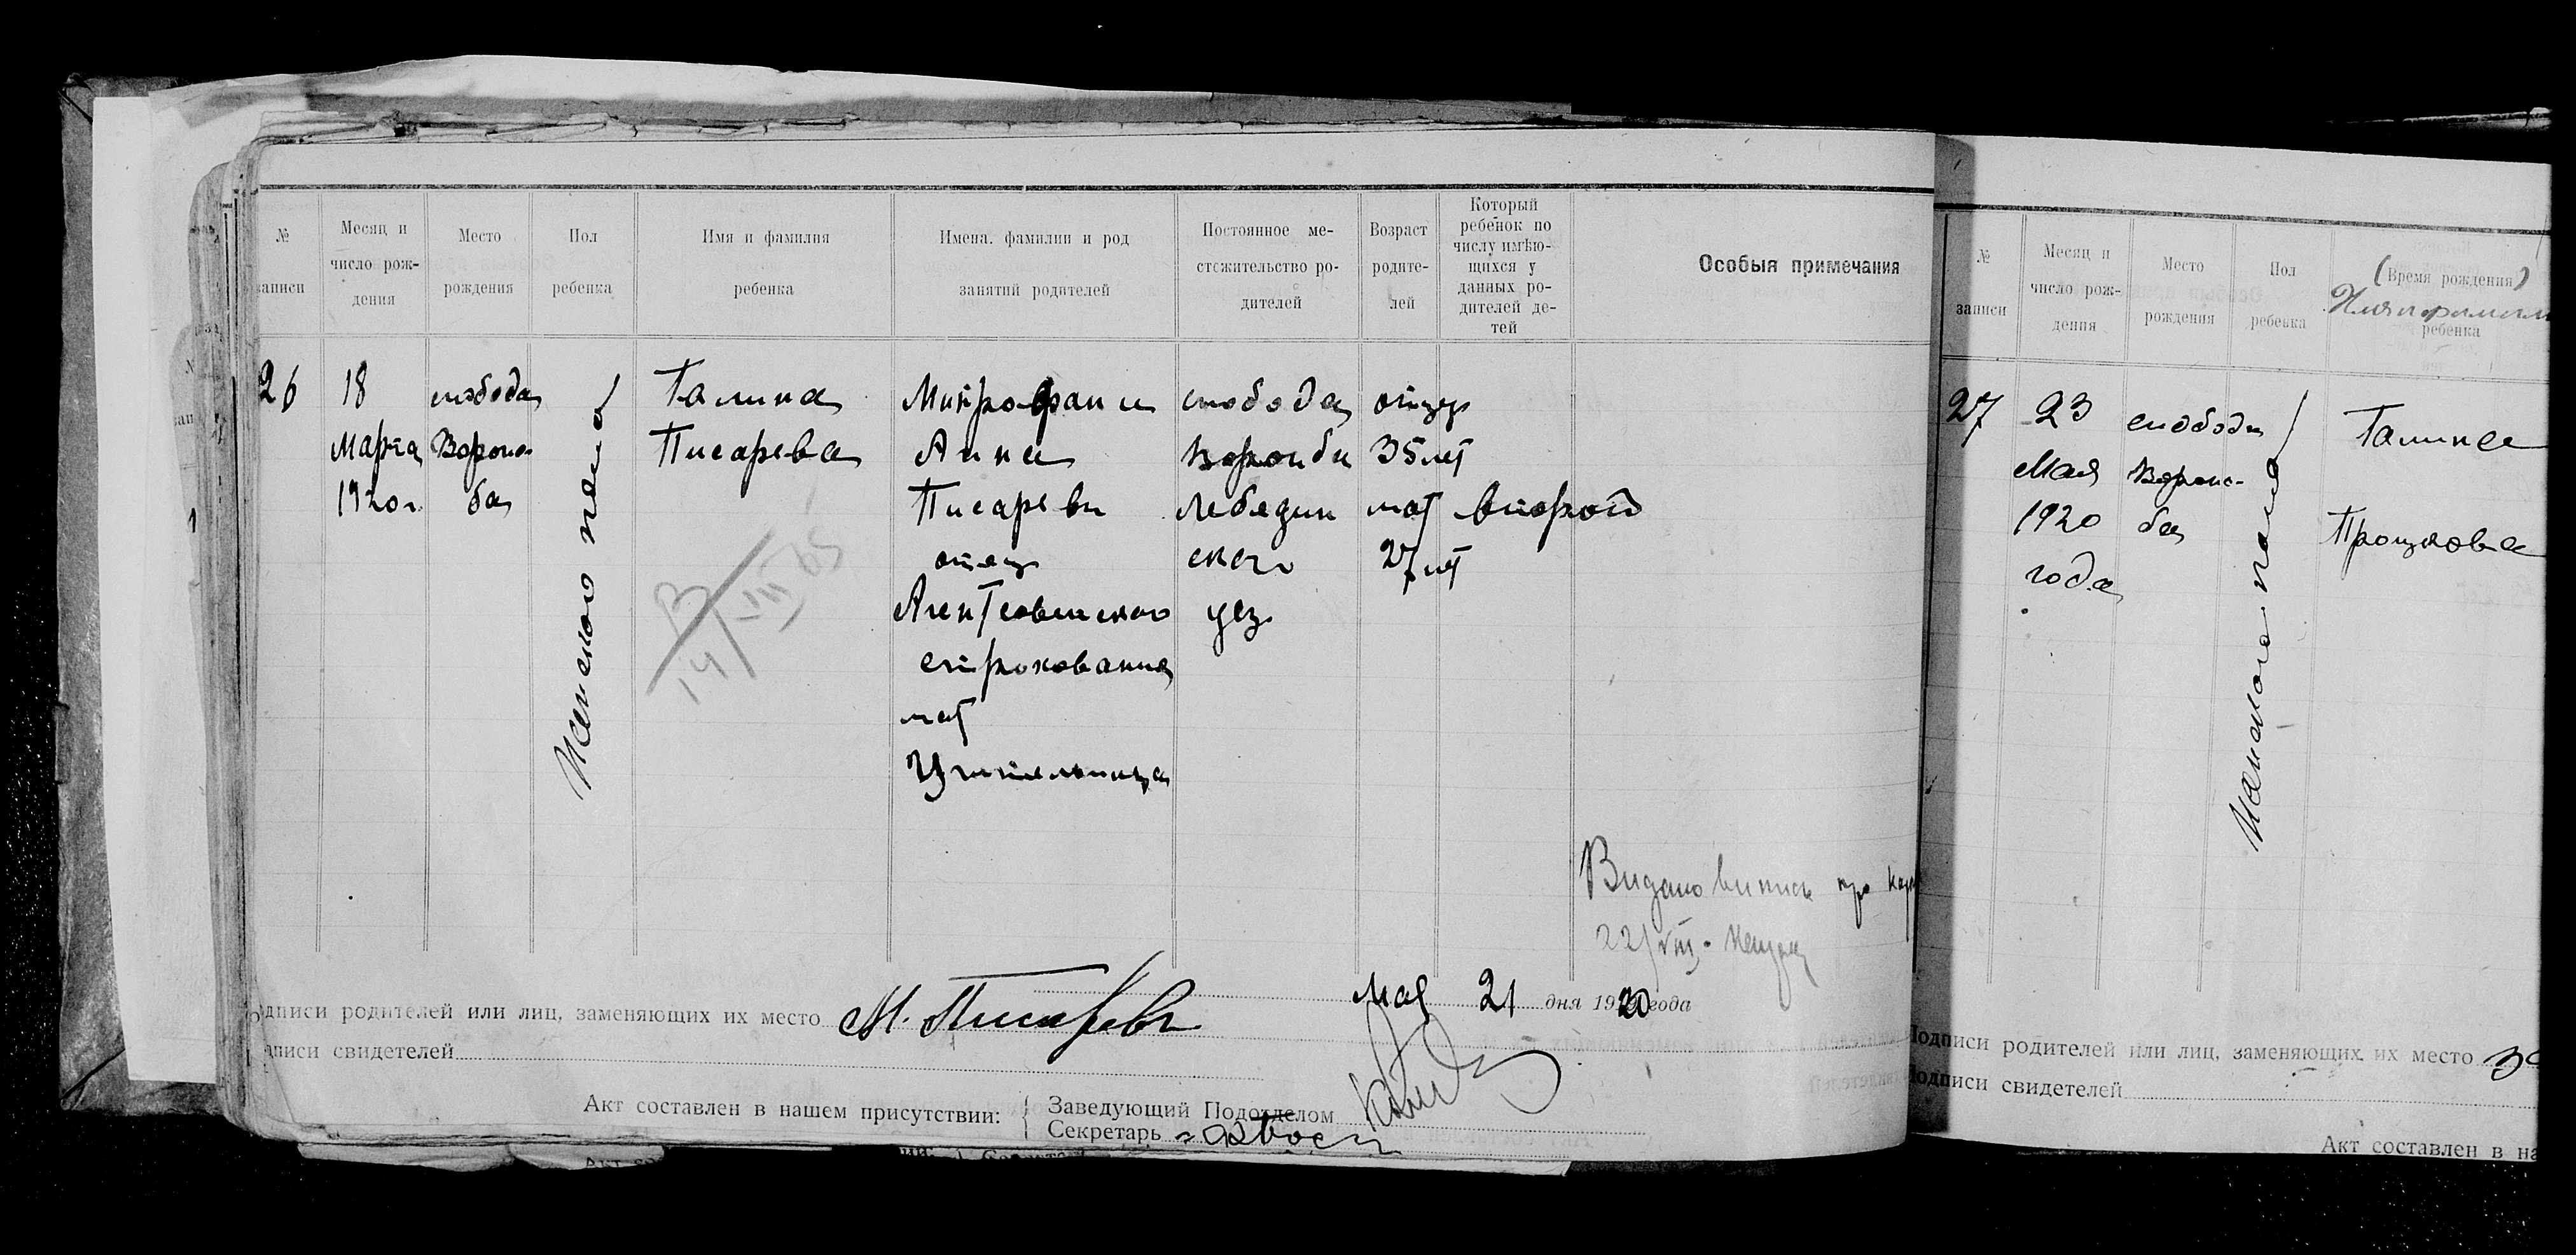 № записи
Месяц и число рождения
Место рождения
Пол ребенка
Имя и фамилия ребенка
Имена, фамилии и род занятий родителей
Постоянное местожительство родителей
Возраст родителей
Который ребенок по числу имѣющихся у данных родителей детей
Особыя примечания
26
18
Марта
1920 г.
слобода
Ворож
ба
Женского пола
Галина
Писарева
Митрофан и
Анна
Писаревы
отец
Агент
страхования
мат
Учительница
слобода
Ворожба
Лебедин
ского
уез.
отец
35 лет
мат
27 лет
второй
В
14/VIII 65
Видано випись про
22/VIII.
Мая 21 дня 1920 года
Подписи родителей или лиц, заменяющих их место М. Писарев
Подписи свидетелей
Акт составлен в нашем присутствии:
Заведующий Подотделом
Секретарь
№ записи
Месяц и число рождения
Место рождения
Пол ребенка
(Время рождения)
ребенка
27
23
Мая
1920
года
слобода
Ворож-
ба
Женского пола
Галина
Подписи родителей или лиц, заменяющих их место
Подписи свидетелей
Акт составлен в на